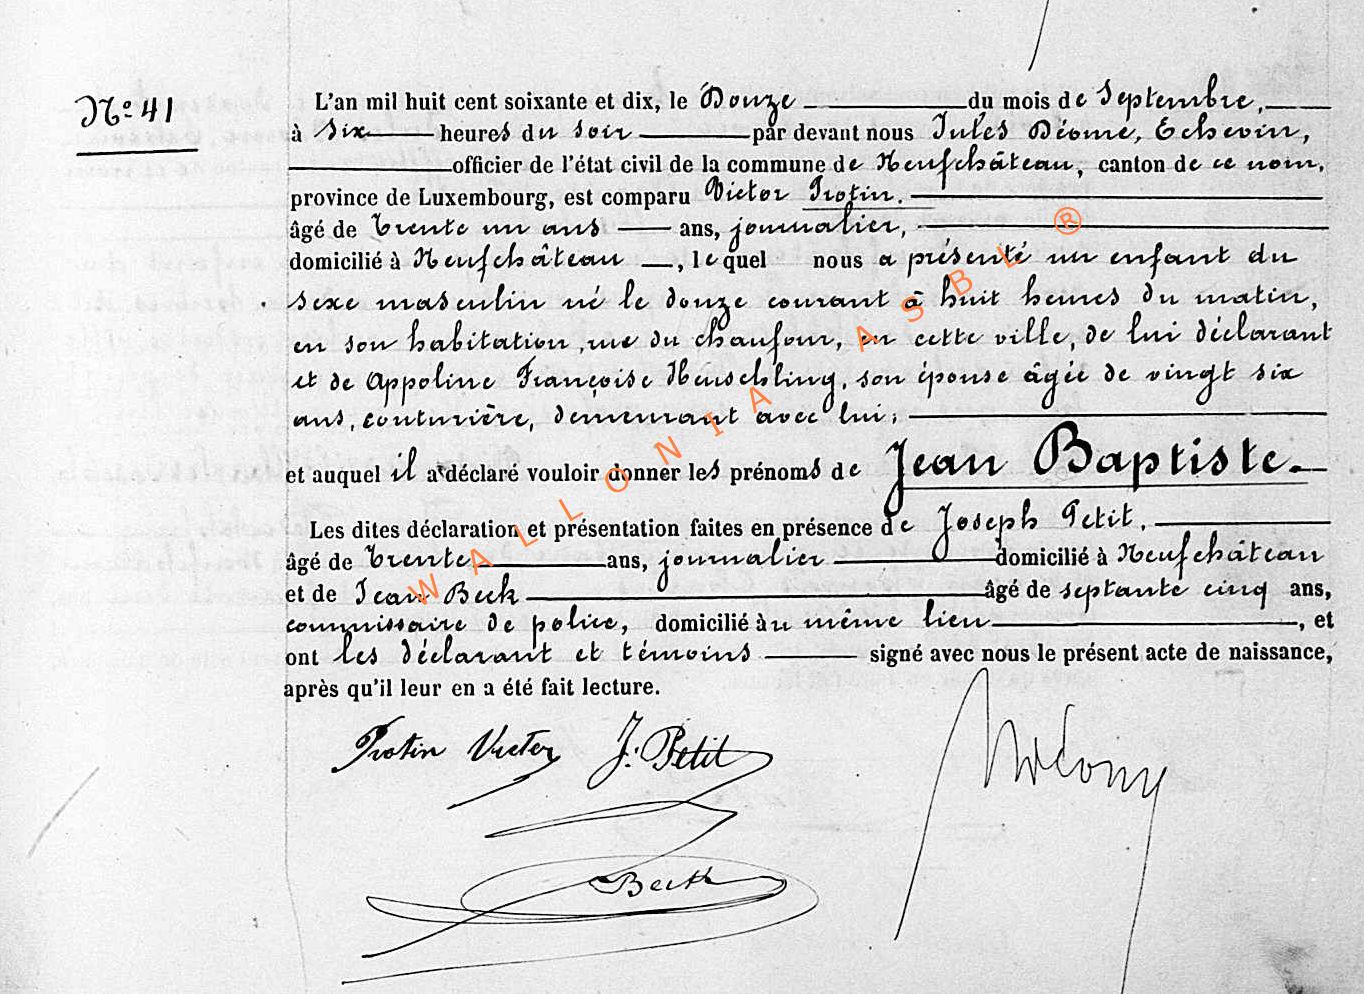 N° 41
L'an mil huit cent soixante et dix, le Douze du mois de Septembre,
à six heures du soir par devant nous Jules Déome, Echevin,
officier de l'état civil de la commune de Neufchâteau, canton de ce nom,
province de Luxembourg, est comparu Victor Protin.
âgé de trente un ans ans, journalier,
domicilié à Neufchâteau, lequel nous a présenté un enfant du
sexe masculin né le douze courant à huit heures du matin,
en son habitation, rue du chaufour, en cette ville, de lui déclarant
et de Appoline Françoise Heuschling, son épouse âgée de vingt six
ans, couturière, demeurant avec lui;
et auquel il a déclaré vouloir donner les prénoms de Jean Baptiste.
Les dites déclaration et présentation faites en présence de Joseph Petit,
âgé de trente ans, journalier domicilié à Neufchâteau
et de Jean Beck âgé de septante cinq ans,
commissaire de police, domicilié au même lieu, et
ont les déclarant et témoins signé avec nous le présent acte de naissance,
après qu'il leur en a été fait lecture.
Protin Victor J. Petit
Beck
WALLONIA ASBL ®